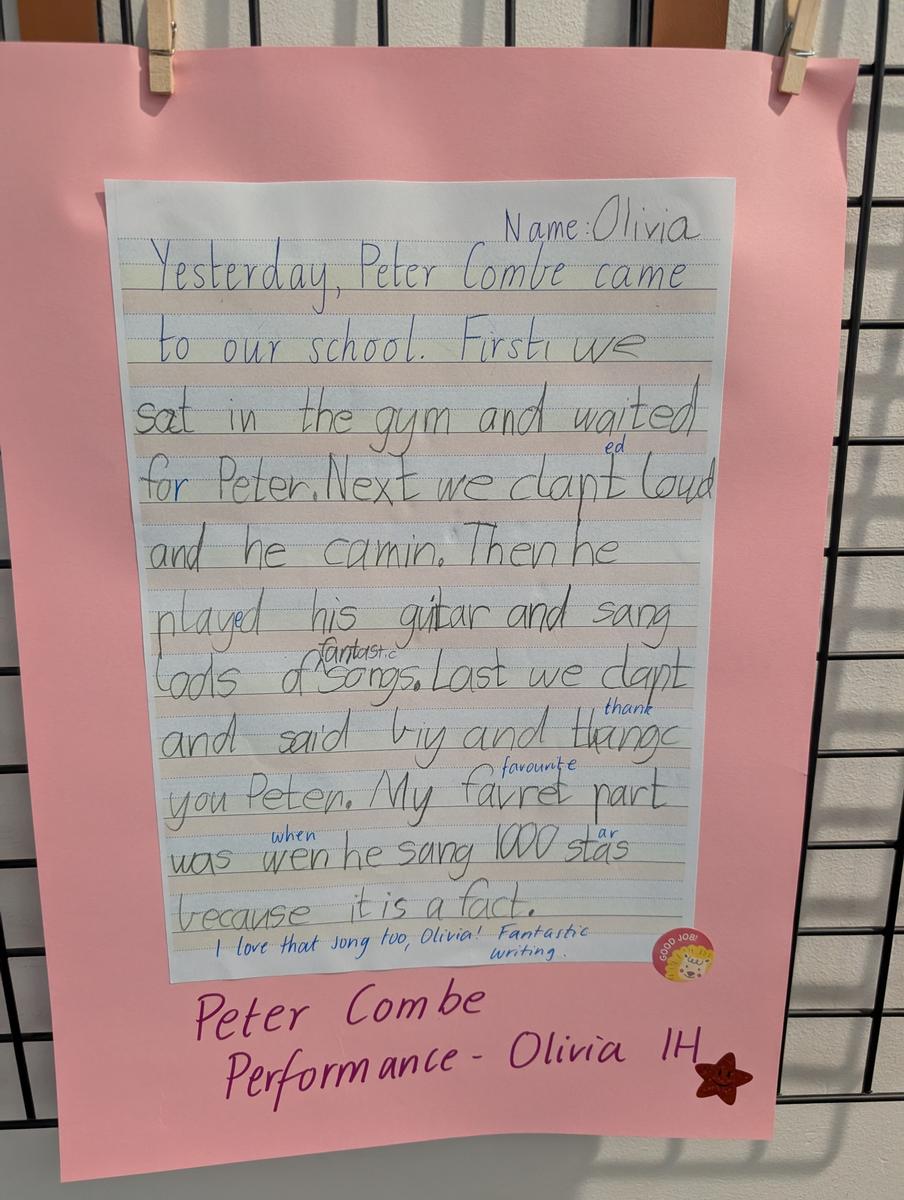 Name: Olivia
Yesterday, Peter Combe came
to our school. First, we
sat in the gym and waited
ed
for Peter. Next we clapt loud
and he camin. Then he
played his guitar and sang
fantastic
lods of songs. Last we clapt
thank
and said biy and thangc
favourite
you Peter. My favret part
when ar
was wen he sang 1000 stas
because it is a fact.
I love that song too, Olivia! Fantastic
writing.
GOOD JOB!
Peter Combe
Performance - Olivia 1H